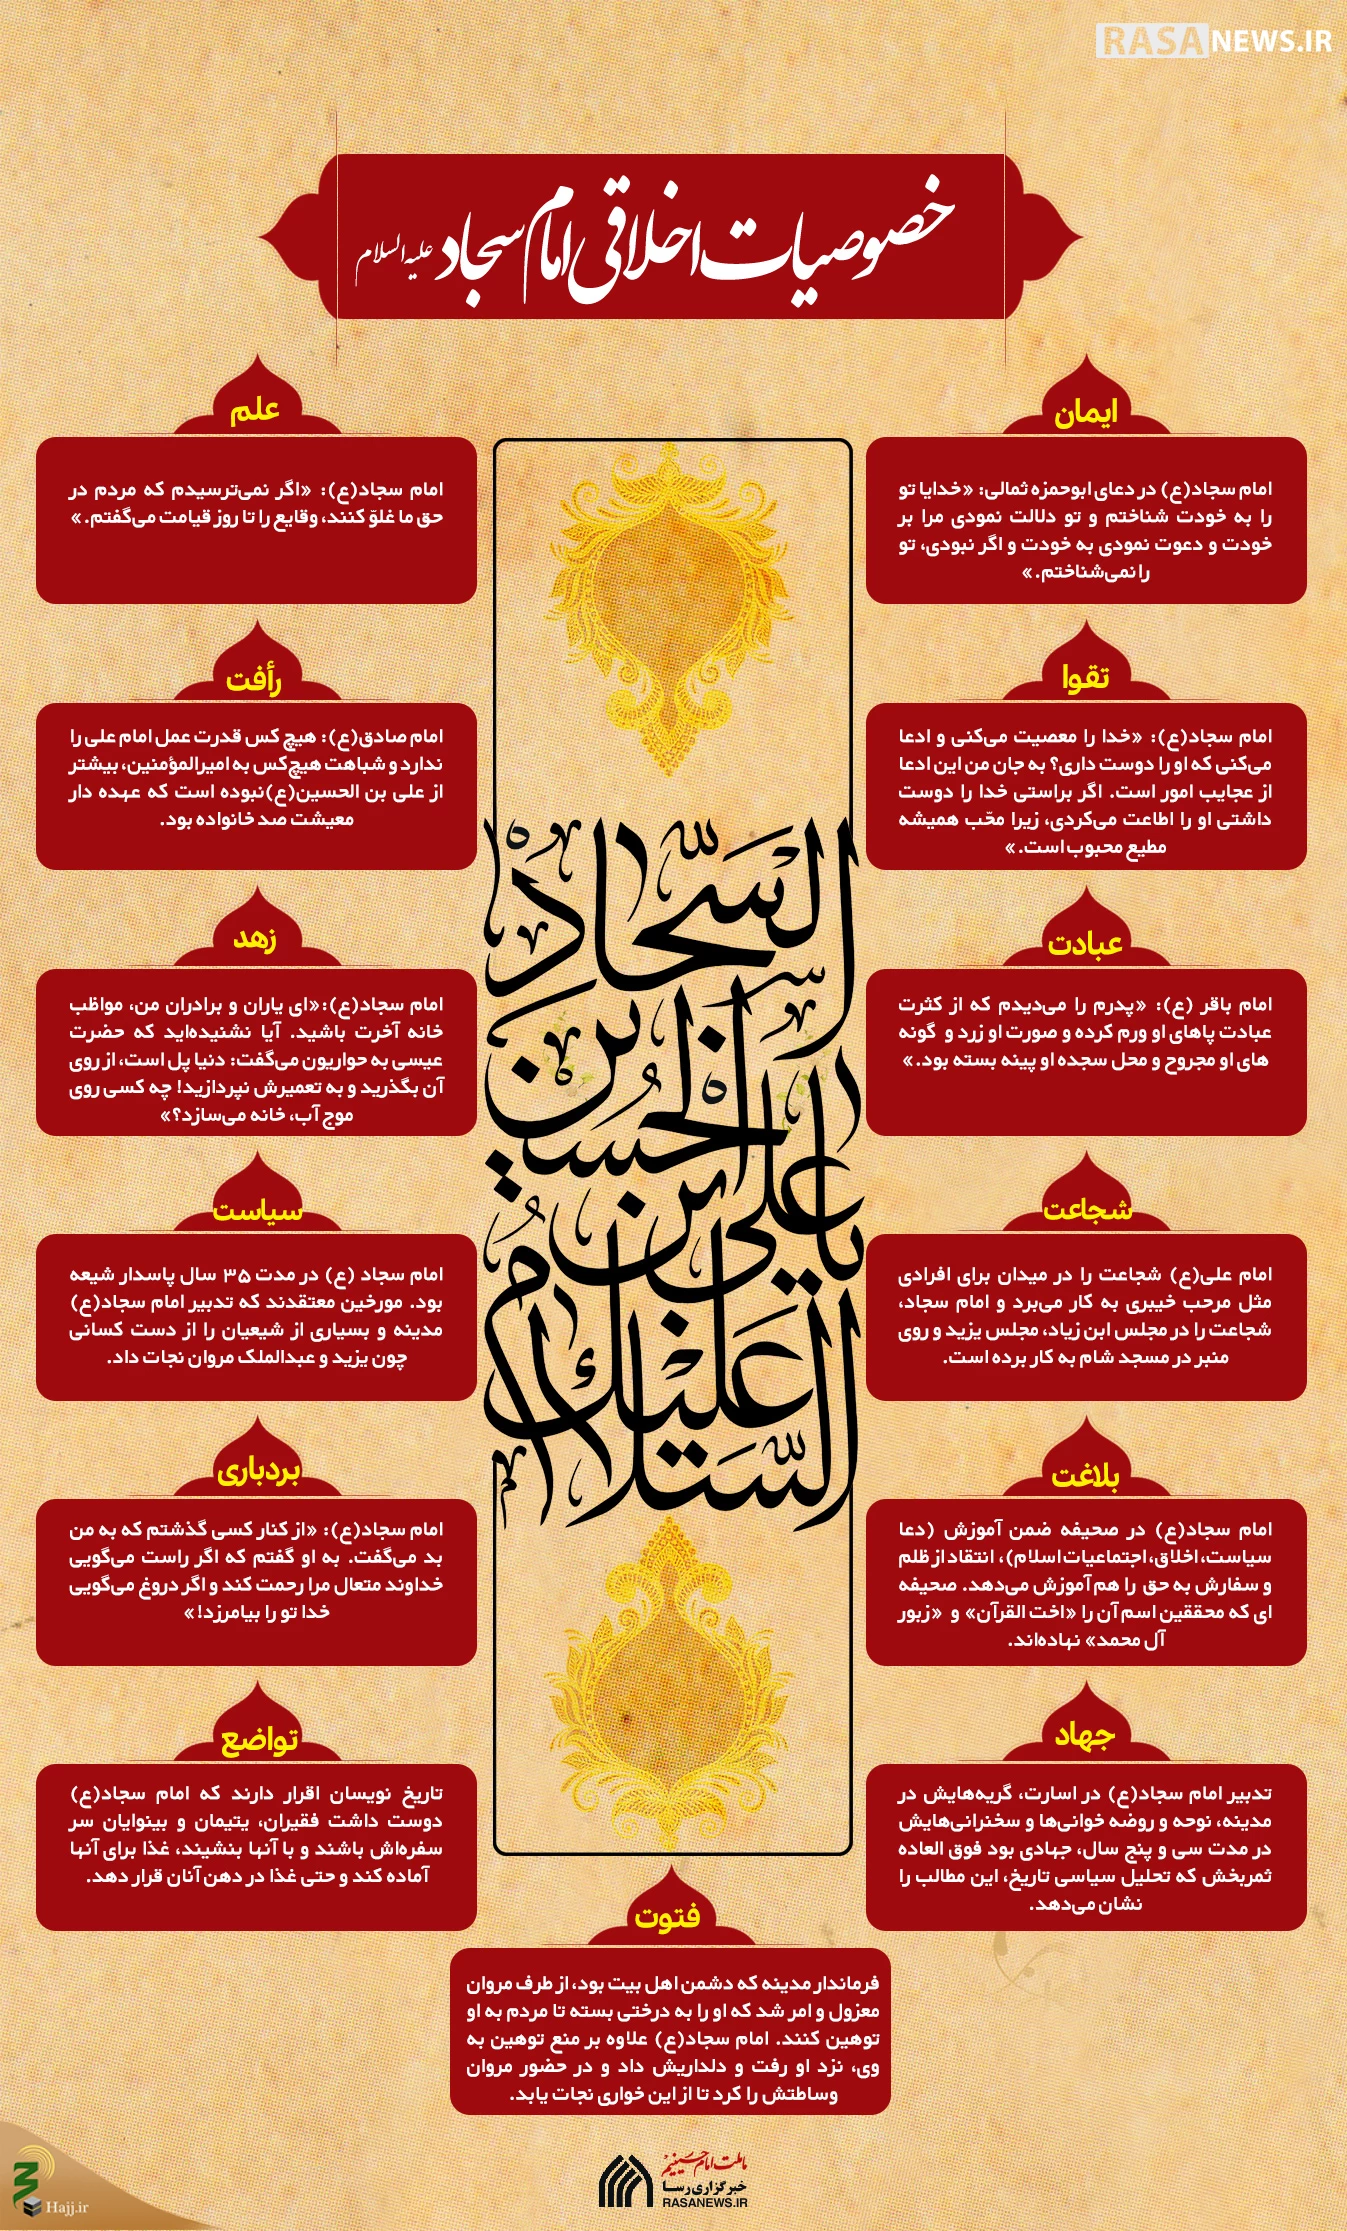 RASANEWS.IR
خصوصیات اخلاقی امام سجاد علیه السلام
ایمان
امام سجاد(ع) در دعای ابوحمزه ثمالی: «خدایا تو
را به خودت شناختم و تو دلالت نمودی مرا بر
خودت و دعوت نمودی به خودت و اگر نبودی، تو
را نمی‌شناختم.»
علم
امام سجاد(ع): «اگر نمی‌ترسیدم که مردم در
حق ما غلوّ کنند، وقایع را تا روز قیامت می‌گفتم.»
تقوا
امام سجاد(ع): «خدا را معصیت می‌کنی و ادعا
می‌کنی که او را دوست داری؟ به جان من این ادعا
از عجایب امور است. اگر براستی خدا را دوست
داشتی او را اطاعت می‌کردی، زیرا محّب همیشه
مطیع محبوب است.»
رأفت
امام صادق(ع): هیچ کس قدرت عمل امام علی را
ندارد و شباهت هیچ‌کس به امیرالمؤمنین، بیشتر
از علی بن الحسین(ع)نبوده است که عهده دار
معیشت صد خانواده بود.
عبادت
امام باقر (ع): «پدرم را می‌دیدم که از کثرت
عبادت پاهای او ورم کرده و صورت او زرد و گونه
های او مجروح و محل سجده او پینه بسته بود.»
زهد
امام سجاد(ع):«ای یاران و برادران من، مواظب
خانه آخرت باشید. آیا نشنیده‌اید که حضرت
عیسی به حواریون می‌گفت: دنیا پل است، از روی
آن بگذرید و به تعمیرش نپردازید! چه کسی روی
موج آب، خانه می‌سازد؟»
شجاعت
امام علی(ع) شجاعت را در میدان برای افرادی
مثل مرحب خیبری به کار می‌برد و امام سجاد،
شجاعت را در مجلس ابن زیاد، مجلس یزید و روی
منبر در مسجد شام به کار برده است.
سیاست
امام سجاد (ع) در مدت ۳۵ سال پاسدار شیعه
بود. مورخین معتقدند که تدبیر امام سجاد(ع)
مدینه و بسیاری از شیعیان را از دست کسانی
چون یزید و عبدالملک مروان نجات داد.
بلاغت
امام سجاد(ع) در صحیفه ضمن آموزش (دعا
سیاست، اخلاق، اجتماعیات اسلام)، انتقاد از ظلم
و سفارش به حق را هم آموزش می‌دهد. صحیفه
ای که محققین اسم آن را «اخت القرآن» و «زبور
آل محمد» نهاده‌اند.
بردباری
امام سجاد(ع): «از کنار کسی گذشتم که به من
بد می‌گفت. به او گفتم که اگر راست می‌گویی
خداوند متعال مرا رحمت کند و اگر دروغ می‌گویی
خدا تو را بیامرزد!»
جهاد
تدبیر امام سجاد(ع) در اسارت، گریه‌هایش در
مدینه، نوحه و روضه خوانی‌ها و سخنرانی‌هایش
در مدت سی و پنج سال، جهادی بود فوق العاده
ثمربخش که تحلیل سیاسی تاریخ، این مطالب را
نشان می‌دهد.
تواضع
تاریخ نویسان اقرار دارند که امام سجاد(ع)
دوست داشت فقیران، یتیمان و بینوایان سر
سفره‌اش باشند و با آنها بنشیند، غذا برای آنها
آماده کند و حتی غذا در دهن آنان قرار دهد.
السلام
علیک
یا علی ابن
الحسین
السجاد
فتوت
فرماندار مدینه که دشمن اهل بیت بود، از طرف مروان
معزول و امر شد که او را به درختی بسته تا مردم به او
توهین کنند. امام سجاد(ع) علاوه بر منع توهین به
وی، نزد او رفت و دلداریش داد و در حضور مروان
وساطتش را کرد تا از این خواری نجات یابد.
ما ملت امام حسینیم
خبرگزاری رسا
RASANEWS.IR
Hajj.ir